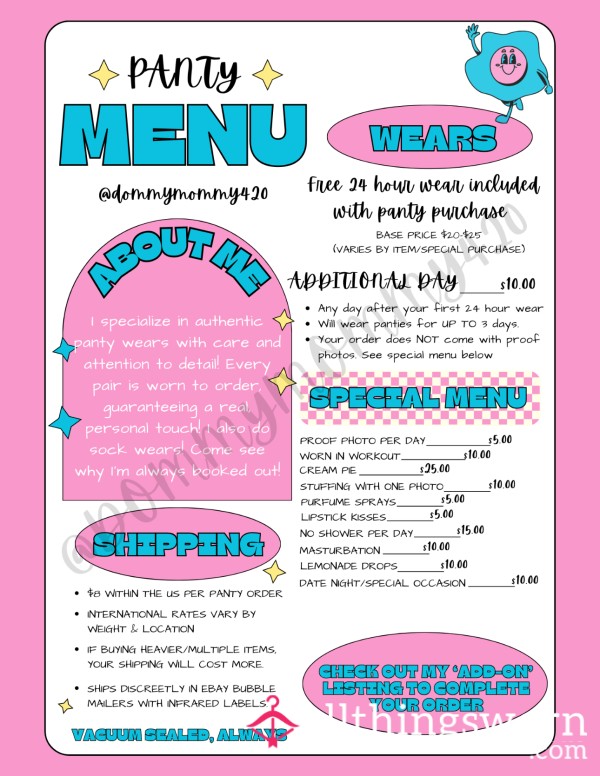 PANTY
MENU
@dommymommy420
ABOUT ME
I specialize in authentic
panty wears with care and
attention to detail! Every
pair is worn to order,
guaranteeing a real,
personal touch! I also do
sock wears! Come see
why I'm always booked out!
SHIPPING
$8 WITHIN THE US PER PANTY ORDER
INTERNATIONAL RATES VARY BY
WEIGHT & LOCATION
IF BUYING HEAVIER/MULTIPLE ITEMS,
YOUR SHIPPING WILL COST MORE.
SHIPS DISCREETLY IN EBAY BUBBLE
MAILERS WITH INFRARED LABELS
VACUUM SEALED, ALWAYS
WEARS
Free 24 hour wear included
with panty purchase
BASE PRICE $20-$25
(VARIES BY ITEM/SPECIAL PURCHASE)
ADDITIONAL DAY ______$10.00
Any day after your first 24 hour wear
Will wear panties for UP TO 3 days.
Your order does NOT come with proof
photos. See special menu below
SPECIAL MENU
PROOF PHOTO PER DAY__________$5.00
WORN IN WORKOUT_________$10.00
CREAM PIE __________$25.00
STUFFING WITH ONE PHOTO_______$10.00
PURFUME SPRAYS_______$5.00
LIPSTICK KISSES______$5.00
NO SHOWER PER DAY_______$15.00
MASTURBATION _______$10.00
LEMONADE DROPS________$10.00
DATE NIGHT/SPECIAL OCCASION _______$10.00
CHECK OUT MY 'ADD-ON'
LISTING TO COMPLETE
YOUR ORDER
@dommymommy420
allthingsworn
.com